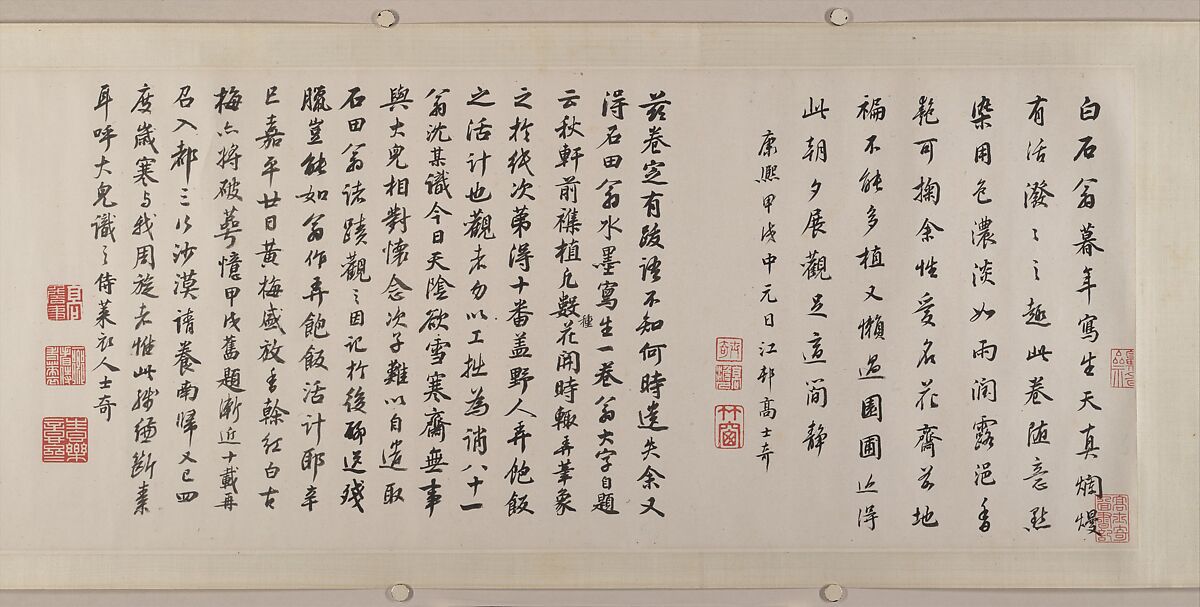 白石翁暮年寫生天真爛熳
有活潑〻之趣此卷隨意點
染用色濃淡如雨潤露浥香
艷可掬余性愛名花齋前地
褊不能多植又懶過園圃近得
此朝夕展觀足適閒靜
康熙甲戌中元日江邨高士奇
竹窗
茲卷定有跋語不知何時遺失余又
得石田翁水墨寫生一卷翁大字自題
云秋軒前襍植凡數種花開時輒弄筆象
之於紙次第得十番蓋野人弄飽飯
之活計也觀者勿以工拙為誚八十一
翁沈某識今日天陰欲雪寒齋無事
與大兒相對懷念次子難以自遣取
石田翁諸蹟觀之因記於後聊送殘
臘豈能如翁作弄飽飯活計耶辛
巳嘉平廿日黃梅盛放香紅白古
梅亦將破萼憶甲戌舊題漸近十載再
召入都三從沙漠請養南歸又已四
度歲寒与我周旋者惟此殘縑斷素
耳呼大兒識之侍萊衣人士奇